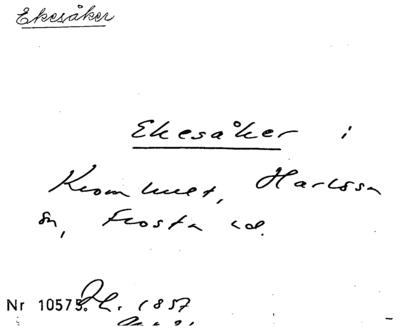 Ekesåker
Ekesåker i
Harlösa
sn, Frosta hd.
Nr 10575. 1857